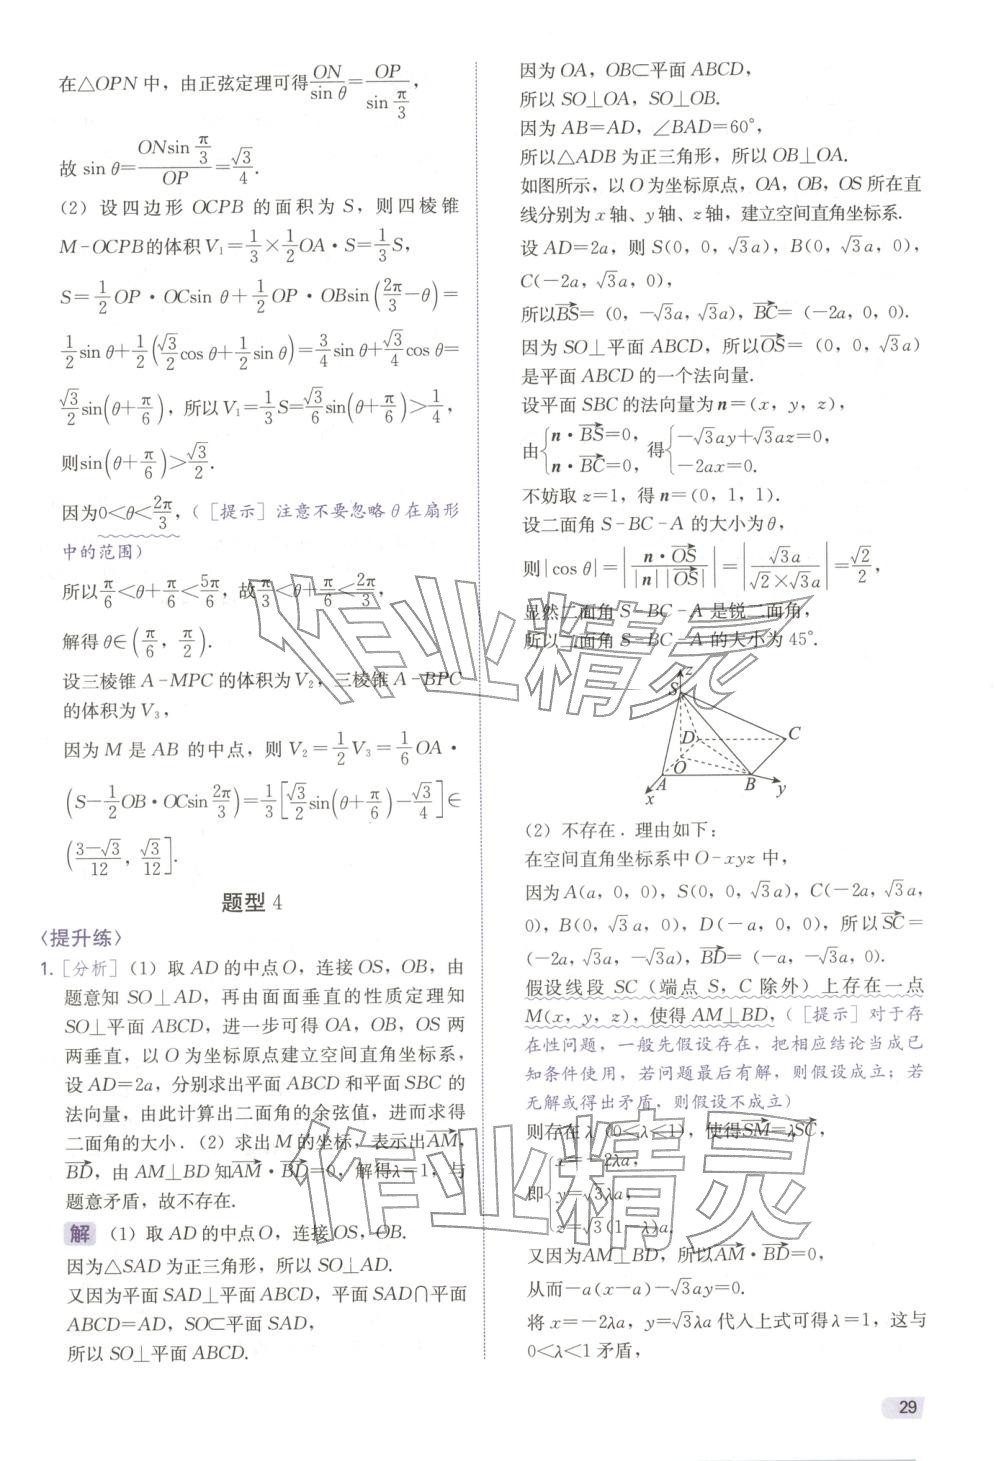 在△OPN中，由正弦定理可得ON/sin θ=OP/sin π/3，
故 sin θ=ONsin π/3/OP=√3/4.
（2）设四边形 OCPB 的面积为 S，则四棱锥
M-OCPB的体积V₁=1/3×1/2OA·S=1/3S，
S=1/2OP·OCsin θ+1/2OP·OBsin(2π/3-θ)=
1/2sin θ+1/2(√3/2cos θ+1/2sin θ)=3/4sin θ+√3/4cos θ=
√3/2sin(θ+π/6)，所以V₁=1/3S=√3/6sin(θ+π/6)>1/4，
则sin(θ+π/6)>√3/2.
因为0<θ<2π/3，（［提示］注意不要忽略θ在扇形
中的范围）
所以π/6<θ+π/6<5π/6，故π/3<θ+π/6<2π/3，
解得θ∈(π/6，π/2).
设三棱锥A-MPC的体积为V₂，三棱锥A-BPC
的体积为V₃，
因为M是AB的中点，则V₂=1/2V₃=1/6OA·
(S-1/2OB·OCsin 2π/3)=1/3[√3/2sin(θ+π/6)-√3/4]∈
(3-√3/12，√3/12].
题型 4
〈提升练〉
1.［分析］（1）取AD的中点O，连接OS，OB，由
题意知SO⊥AD，再由面面垂直的性质定理知
SO⊥平面ABCD，进一步可得OA，OB，OS两
两垂直，以O为坐标原点建立空间直角坐标系，
设AD=2a，分别求出平面ABCD和平面SBC的
法向量，由此计算出二面角的余弦值，进而求得
二面角的大小.（2）求出M的坐标，表示出AM→，
BD→，由AM⊥BD知AM→·BD→=0，解得λ=1，与
题意矛盾，故不存在.
解 （1）取AD的中点O，连接OS，OB.
因为△SAD为正三角形，所以SO⊥AD.
又因为平面SAD⊥平面ABCD，平面SAD∩平面
ABCD=AD，SO⊂平面SAD，
所以SO⊥平面ABCD.
因为OA，OB⊂平面ABCD，
所以SO⊥OA，SO⊥OB.
因为AB=AD，∠BAD=60°，
所以△ADB为正三角形，所以OB⊥OA.
如图所示，以O为坐标原点，OA，OB，OS所在直
线分别为x轴、y轴、z轴，建立空间直角坐标系.
设AD=2a，则S(0，0，√3a)，B(0，√3a，0)，
C(-2a，√3a，0)，
所以BS→=(0，-√3a，√3a)，BC→=(-2a，0，0).
因为SO⊥平面ABCD，所以OS→=(0，0，√3a)
是平面ABCD的一个法向量.
设平面SBC的法向量为n=(x，y，z)，
由{n·BS→=0，n·BC→=0，得{-√3ay+√3az=0，-2ax=0.
不妨取z=1，得n=(0，1，1).
设二面角S-BC-A的大小为θ，
则|cos θ|=|n·OS→/|n||OS→||=|√3a/√2×√3a|=√2/2，
显然二面角S-BC-A是锐二面角，
所以二面角S-BC-A的大小为45°.
z
S
D
C
O
A
B
x
y
（2）不存在.理由如下：
在空间直角坐标系中O-xyz中，
因为A(a，0，0)，S(0，0，√3a)，C(-2a，√3a，
0)，B(0，√3a，0)，D(-a，0，0)，所以SC→=
(-2a，√3a，-√3a)，BD→=(-a，-√3a，0).
假设线段SC（端点S，C除外）上存在一点
M(x，y，z)，使得AM⊥BD，（［提示］对于存
在性问题，一般先假设存在，把相应结论当成已
知条件使用，若问题最后有解，则假设成立；若
无解或得出矛盾，则假设不成立）
则存在λ（0<λ<1），使得SM→=λSC→，
即{x=-2λa，y=√3λa，z=√3(1-λ)a.
又因为AM⊥BD，所以AM→·BD→=0，
从而-a(x-a)-√3ay=0.
将x=-2λa，y=√3λa代入上式可得λ=1，这与
0<λ<1矛盾，
29
作业精灵
作业精灵